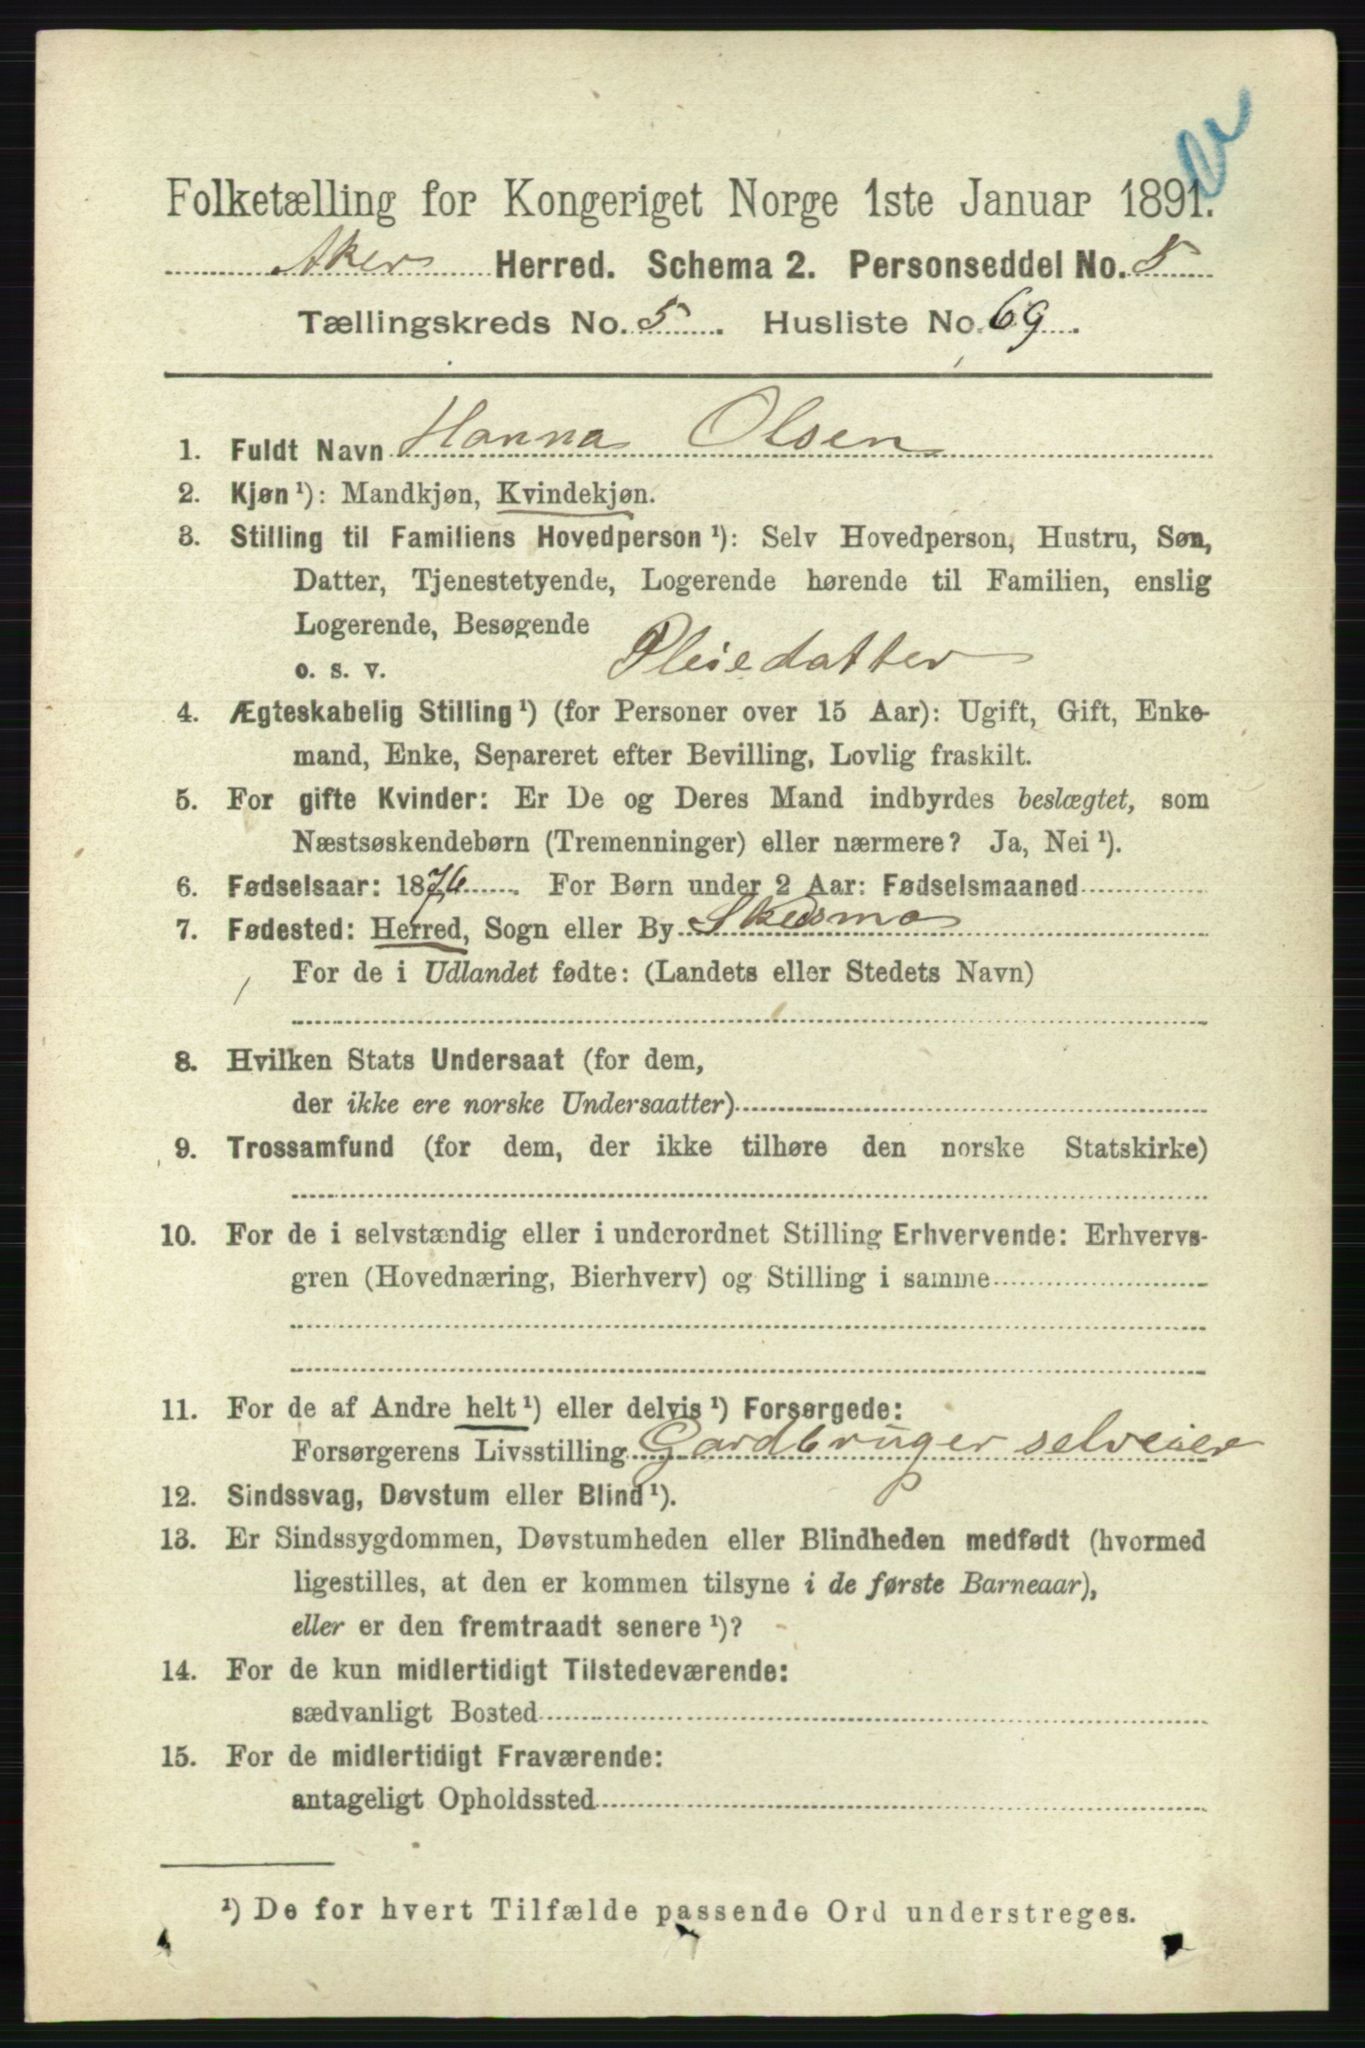 Folketælling for Kongeriget Norge 1ste Januar 1891.
Aker Herred. Schema 2. Personseddel No. 5
Tællingskreds No. 5. Husliste No. 69.
1. Fuldt Navn Hanna Olsen
2. Kjøn ¹): Mandkjøn, Kvindekjøn.
3. Stilling til Familiens Hovedperson ¹): Selv Hovedperson, Hustru, Søn,
Datter, Tjenestetyende, Logerende hørende til Familien, enslig
Logerende, Besøgende
o. s. v. Pleiedatter
4. Ægteskabelig Stilling ¹) (for Personer over 15 Aar): Ugift, Gift, Enke-
mand, Enke, Separeret efter Bevilling, Lovlig fraskilt.
5. For gifte Kvinder: Er De og Deres Mand indbyrdes beslægtet, som
Næstsøskendebørn (Tremenninger) eller nærmere? Ja, Nei ¹).
6. Fødselsaar: 1876. For Børn under 2 Aar: Fødselsmaaned
7. Fødested: Herred, Sogn eller By Skedsmo
For de i Udlandet fødte: (Landets eller Stedets Navn)
8. Hvilken Stats Undersaat (for dem,
der ikke ere norske Undersaatter)
9. Trossamfund (for dem, der ikke tilhøre den norske Statskirke)
10. For de i selvstændig eller i underordnet Stilling Erhvervende: Erhvervs-
gren (Hovednæring, Bierhverv) og Stilling i samme
11. For de af Andre helt ¹) eller delvis ¹) Forsørgede:
Forsørgerens Livsstilling Gardbruger selveier
12. Sindssvag, Døvstum eller Blind ¹).
13. Er Sindssygdommen, Døvstumheden eller Blindheden medfødt (hvormed
ligestilles, at den er kommen tilsyne i de første Barneaar),
eller er den fremtraadt senere ¹)?
14. For de kun midlertidigt Tilstedeværende:
sædvanligt Bosted
15. For de midlertidigt Fraværende:
antageligt Opholdssted
¹) De for hvert Tilfælde passende Ord understreges.